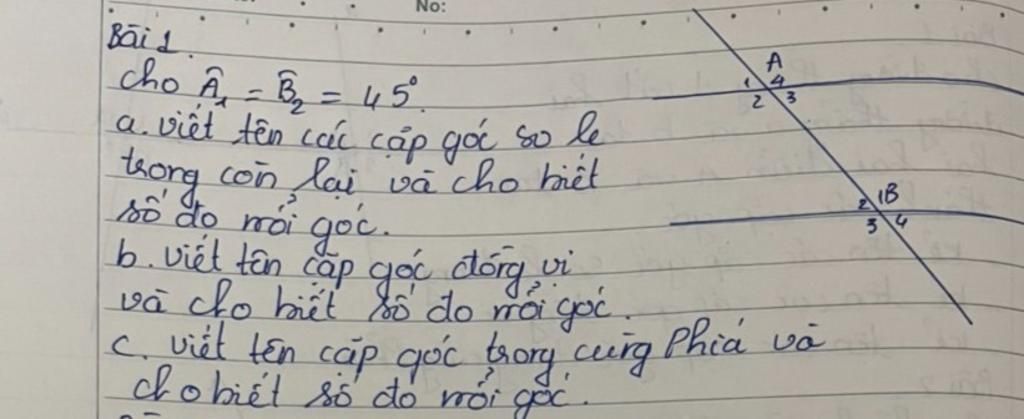 No:
Bài 1
Cho Â₁ = B̂₂ = 45°.
a. viết tên các cặp góc so le
trong còn lại và cho biết
số đo mỗi góc.
b. viết tên cặp góc đồng vị
và cho biết số đo mỗi góc.
c. viết tên cặp góc trong cùng Phiá và
cho biết số đo mỗi góc.
A
1 4
2 3
B
2 1
3 4